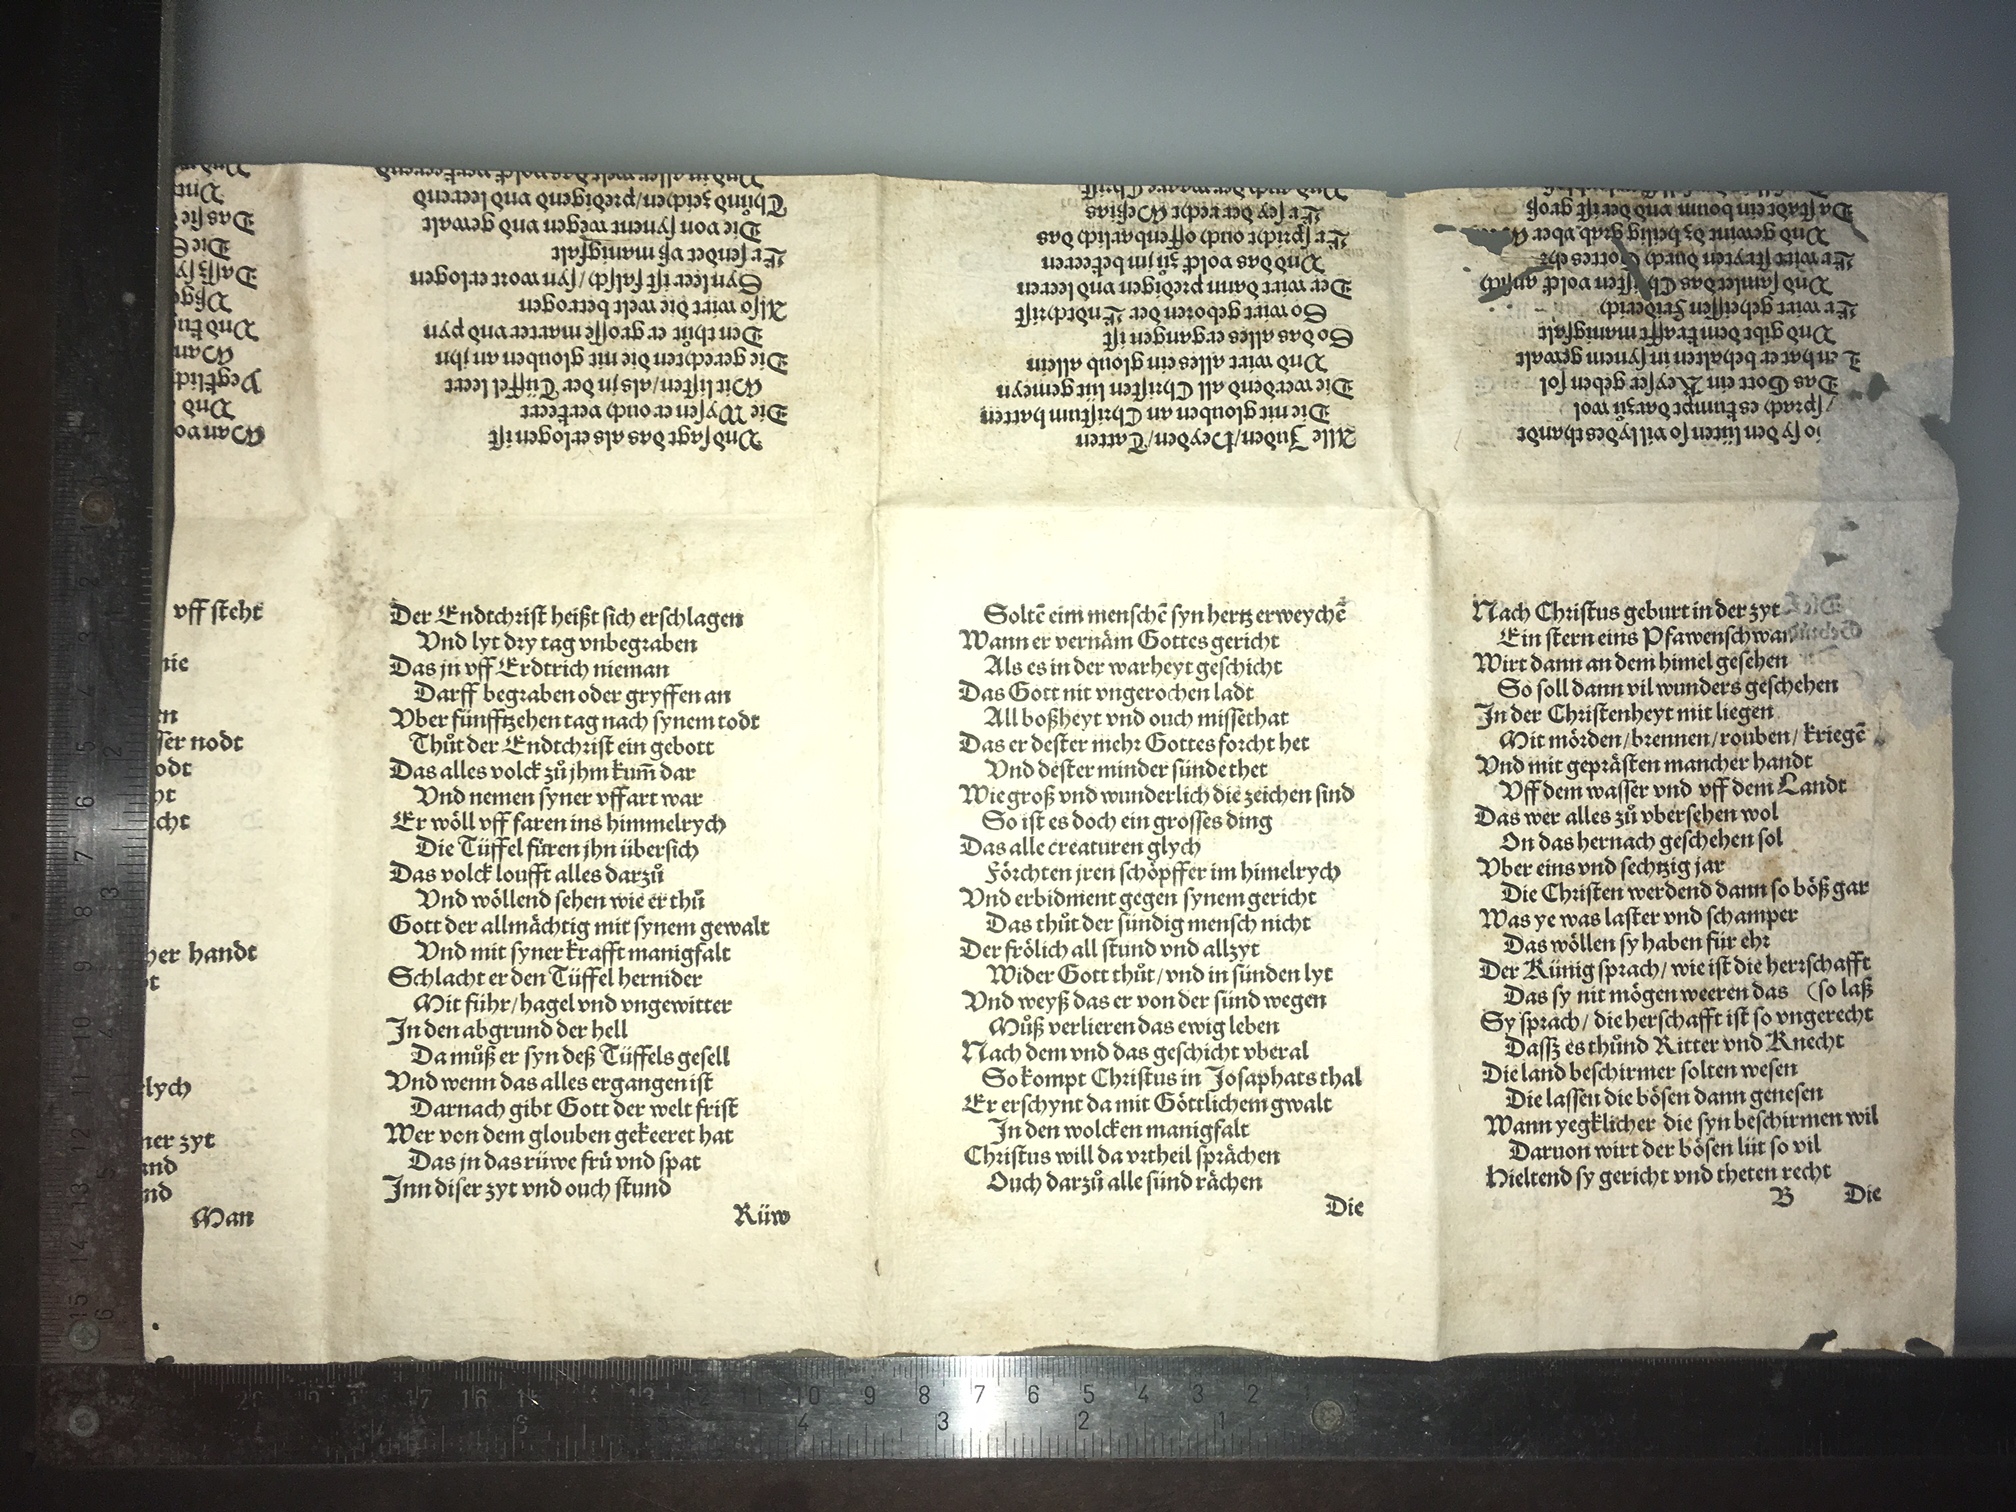 vff steht
nie
en
ser nodt
odt
ht
cht
her handt
ht
elych
ner zyt
and
nd
Man
Der Endtchrist heißt sich erschlagen
Vnd lyt dry tag vnbegraben
Das jn vff Erdtrich nieman
Darff begraben oder gryffen an
Vber fünfftzehen tag nach synem todt
Thůt der Endtchrist ein gebott
Das alles volck zů jhm kum̃ dar
Vnd nemen syner vffart war
Er wöll vff faren ins himmelrych
Die Tüffel füren jhn übersich
Das volck loufft alles darzů
Vnd wöllend sehen wie er thů
Gott der allmächtig mit synem gewalt
Vnd mit syner krafft manigfalt
Schlacht er den Tüffel hernider
Mit führ/hagel vnd vngewitter
In den abgrund der hell
Da můß er syn deß Tüffels gesell
Vnd wenn das alles ergangen ist
Darnach gibt Gott der welt frist
Wer von dem glouben gekeeret hat
Das jn das rüwe frü vnd spat
Inn diser zyt vnd ouch stund
Rüw
Soltẽ eim menschẽ syn hertz erweychẽ
Wann er vernäm Gottes gericht
Als es in der warheyt geschicht
Das Gott nit vngerochen ladt
All boßheyt vnd ouch missethat
Das er dester mehr Gottes forcht het
Vnd dester minder sünde thet
Wie groß vnd wunderlich die zeichen sind
So ist es doch ein grosses ding
Das alle creaturen glych
Förchten jren schöpffer im himelrych
Vnd erbidment gegen synem gericht
Das thůt der sündig mensch nicht
Der frölich all stund vnd allzyt
Wider Gott thůt/vnd in sünden lyt
Vnd weyß das er von der sünd wegen
Můß verlieren das ewig leben
Nach dem vnd das geschicht vberal
So kompt Christus in Josaphats thal
Er erschynt da mit Göttlichem gwalt
In den wolcken manigfalt
Christus will da vrtheil sprächen
Ouch darzů alle sünd rächen
Die
Nach Christus geburt in der zyt
Ein stern eins Pfawenschwan
Wirt dann an dem himel gesehen
So soll dann vil wunders geschehen
In der Christenheyt mit liegen
Mit mörden/brennen/rouben/kriegẽ
Vnd mit geprästen mancher handt
Vff dem wasser vnd vff dem Landt
Das wer alles zů vbersehen wol
On das hernach geschehen sol
Vber eins vnd sechtzig jar
Die Christen werdend dann so böß gar
Was ye was laster vnd schamper
Das wöllen sy haben für ehr
Der Künig sprach/wie ist die herrschafft
Das sy nit mögen weeren das (so laß
Sy sprach/die herschafft ist so vngerecht
Dassz es thůnd Ritter vnd Knecht
Die land beschirmer solten wesen
Die lassen die bösen dann genesen
Wann yegklicher die syn beschirmen wil
Daruon wirt der bösen lüt so vil
Hieltend sy gericht vnd theten recht
B Die
so sy den lüten so vil lydes thandt
sprach es kumpt darzů wol
Das Gott ein Keyser geben sol
Den hat er behalten in synem gewalt
Vnd gibt dem krafft manigfalt
Er wirt geheissen Friderich
samlet das Christen volck an sich
Er wirt stryten durch Gottes ehr
Vnd gewint dz heilig grab vber
Da stadt ein boum vnd der ist groß
Alle Juden/Heyden/Tatten
Die nit glouben an Christum hatten
Die werdend all Christen lüt gemeyn
Vnd wirt alles ein gloub allein
So das alles ergangen ist
So wirt geboren der Endtchrist
Der wirt dann predigen vnd leeren
Vnd das volck zů jm bekeeren
Er spricht ouch offenbarlich das
Er sey der recht Meßias
Vnd ouch der waare Christ
Vnd sagt das als erlogen ist
Die Wysen er ouch verkeert
Mit listen/als jn der Tüffel leert
Die gerechten die nit glouben an jhn
Den thůt er grosse marter vnd pyn
Also wirt die welt betrogen
Syn leer ist falsch/syn wort erlogen
Er sendet vß manigfalt
Die von synent wegen vnd gewalt
Thůnd zeichen/predigend vnd leerend
Vnd in aller welt das volck verkeerend
Man vo
Vnd
Yegklich
Wan
Die S
Das sie